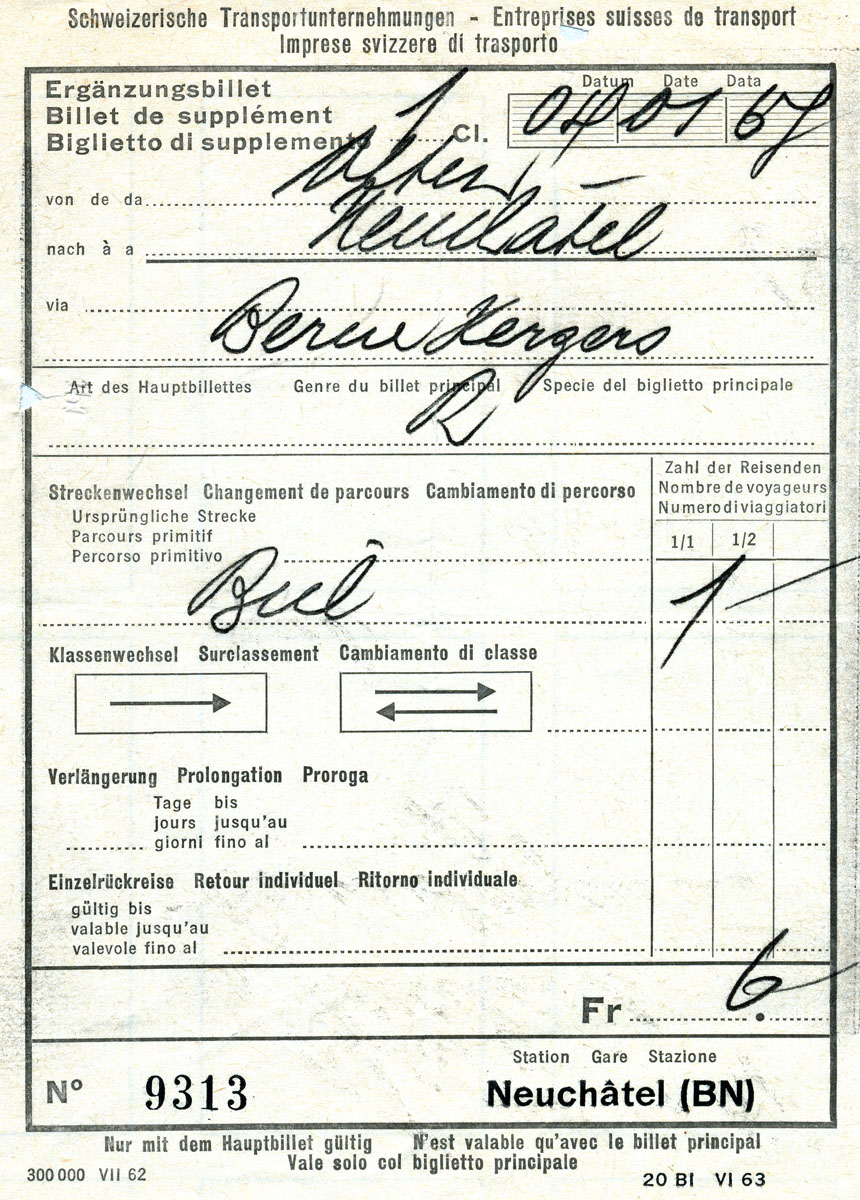 Schweizerische Transportunternehmungen - Entreprises suisses de transport
Imprese svizzere di trasporto
Datum Date Data
Ergänzungsbillet
Billet de supplément
Biglietto di supplemento 1 Cl.
04 01 67
von de da Olten
nach à a Neuchâtel
via
Berne Kerzers
Art des Hauptbillettes Genre du billet principal Specie del biglietto principale
R
Zahl der Reisenden
Nombre de voyageurs
Numero di viaggiatori
1/1 1/2
Streckenwechsel Changement de parcours Cambiamento di percorso
Ursprüngliche Strecke
Parcours primitif
Percorso primitivo
Biel 1
Klassenwechsel Surclassement Cambiamento di classe
Verlängerung Prolongation Proroga
Tage bis
jours jusqu'au
giorni fino al
Einzelrückreise Retour individuel Ritorno individuale
gültig bis
valable jusqu'au
valevole fino al
Fr 6.
Station Gare Stazione
Nº 9313 Neuchâtel (BN)
Nur mit dem Hauptbillet gültig N'est valable qu'avec le billet principal
Vale solo col biglietto principale
300 000 VII 62 20 BI VI 63